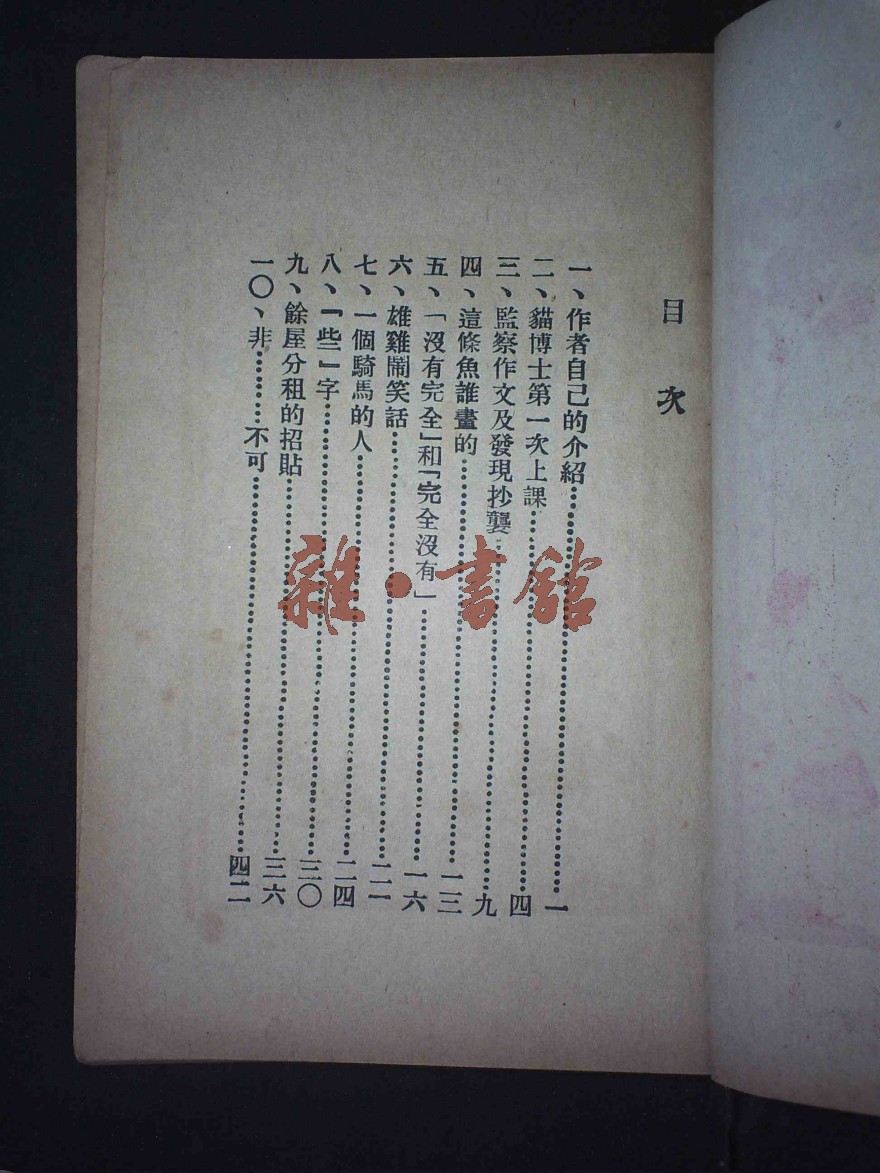 目次
一、作者自己的介紹…………一
二、貓博士第一次上課…………四
三、監察作文及發現抄襲…………九
四、這條魚誰畫的…………一三
五、「沒有完全」和「完全沒有」…………一六
六、雄雞鬧笑話…………二一
七、一個騎馬的人…………二四
八、「一些」字…………三〇
九、餘屋分租的招貼…………三六
一〇、非………不可…………四二
雜·書館